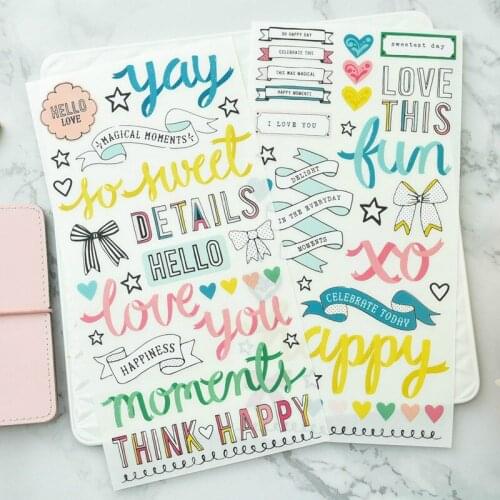 yay
HELLO
LOVE
MAGICAL MOMENTS
so sweet
DETAILS
HELLO
love you
HAPPINESS
moments
THINK HAPPY
OH HAPPY DAY
CELEBRATE THIS
THIS WAS MAGICAL
HAPPY MOMENTS
I LOVE YOU
sweetest day
LOVE
THIS
fun
DELIGHT
IN THE EVERYDAY
MOMENTS
xo
CELEBRATE TODAY
appy